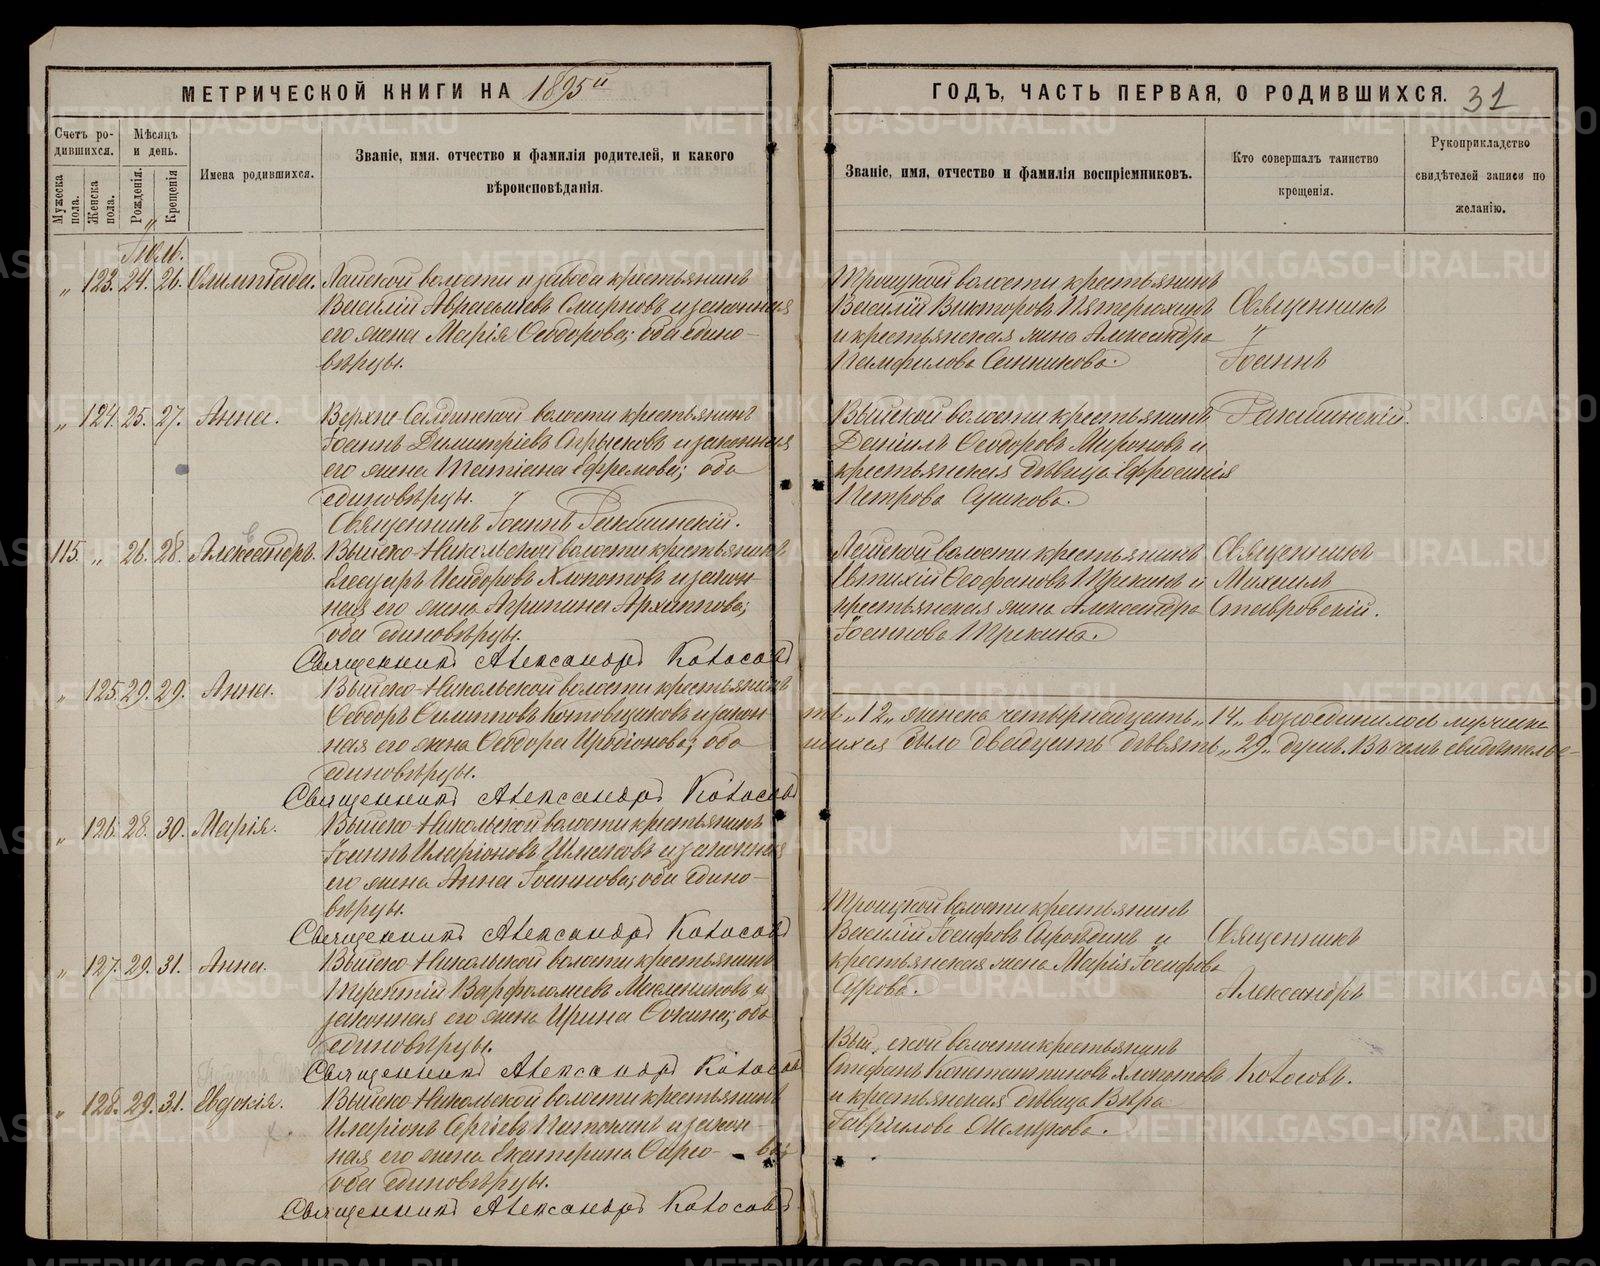 МЕТРИЧЕСКОЙ КНИГИ НА 1895й
Счетъ ро-
дившихся.
Мужеска
пола.
Женска
пола.
Мѣсяцъ
и день.
Рожденія.
Крещенія
Имена родившихся.
Званіе, имя. отчество и фамилія родителей, и какого
вѣроисповѣданія.
Іюль.
„ 123. 24. 26. Олимпіада. Лайской волости и завода крестьянинъ
Василій Смирновъ и законная
его жена Марія Ѳеодорова; оба едино-
вѣрцы.
„ 124. 25. 27. Анна. Верхне-Салдинской волости крестьянинъ
Іоаннъ Димитріевъ и законная
его жена Татіана Ефремова; оба
единовѣрцы.
Священникъ Іоаннъ
115. „ 26. 28. Александръ. Выйско-Никольской волости крестьянинъ
Исидоровъ Хлопотовъ и закон-
ная его жена Агрипина Архиппова;
оба единовѣрцы.
Священникъ Александръ Колосовъ
„ 125. 29. 29. Анна. Выйско-Никольской волости крестьянинъ
Ѳеодоръ Котовщиковъ и закон-
ная его жена Ѳеодора оба
единовѣрцы.
Священникъ Александръ Колосовъ
„ 126. 28. 30. Марія. Выйско-Никольской волости крестьянинъ
Іоаннъ Иларіоновъ и законная
его жена Анна Іоаннова; оба едино-
вѣрцы.
Священникъ Александръ Колосовъ
„ 127. 29. 31. Анна. Выйско-Никольской волости крестьянинъ
Терентій Варфоломеевъ Масленниковъ и
законная его жена Ирина Фокина; оба
единовѣрцы.
Священникъ Александръ Колосовъ
„ 128. 29. 31. Евдокія. Выйско-Никольской волости крестьянинъ
Иларіонъ Сергіевъ и закон-
ная его жена Екатерина
оба единовѣрцы.
Священникъ Александръ Колосовъ
ГОДЪ, ЧАСТЬ ПЕРВАЯ, О РОДИВШИХСЯ. 31
Званіе, имя, отчество и фамилія воспріемниковъ.
Кто совершалъ таинство
крещенія.
Рукоприкладство
свидѣтелей записи по
желанію.
Троицкой волости крестьянинъ
Василій Викторовъ Пятерюхинъ Священникъ
и крестьянская жена Александра
Памфилова Санникова. Іоаннъ
Выйской волости крестьянинъ
Даніилъ Ѳеодоровъ Мироновъ и
крестьянская дѣвица Ефросинія
Петрова Сушкова.
Лайской волости крестьянинъ Священникъ
Евтихій Ѳеофановъ Трекинъ и Михаилъ
крестьянская жена Александра Ставровскій.
Іоаннова Трекина.
ть „12„ женска четырнадцать „14„ возсоединилось
шихся было двадцать девять „29„ душъ. Въ чемъ свидѣтельс-
Троицкой волости крестьянинъ
Василій Іосифовъ и Священникъ
крестьянская жена Марія Іосифова
Сурова. Александръ
Выйской волости крестьянинъ
Стефанъ Константиновъ Хлопотовъ Колосовъ.
и крестьянская дѣвица Вѣра
Гавріилова
METRIKI.GASO-URAL.RU